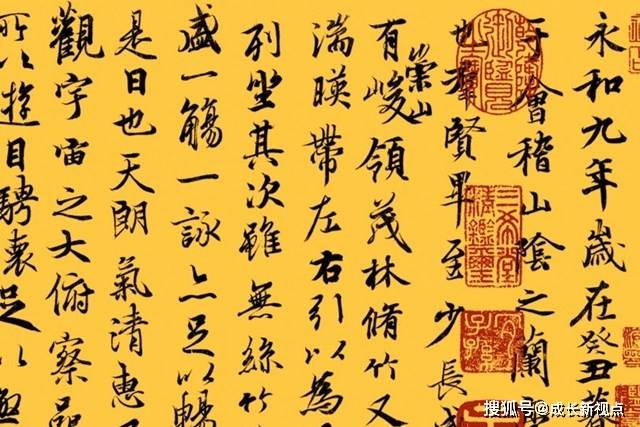 永和九年歲在癸丑暮
于會稽山陰之蘭亭
也羣賢畢至少長咸
有崇山峻領茂林脩竹又
湍暎帶左右引以為
列坐其次雖無絲竹
盛一觴一詠亦足以暢
是日也天朗氣清惠
觀宇宙之大俯察品
所以遊目騁懷足以極
三希堂精鑑璽
宜子孫
搜狐号@成长新视点